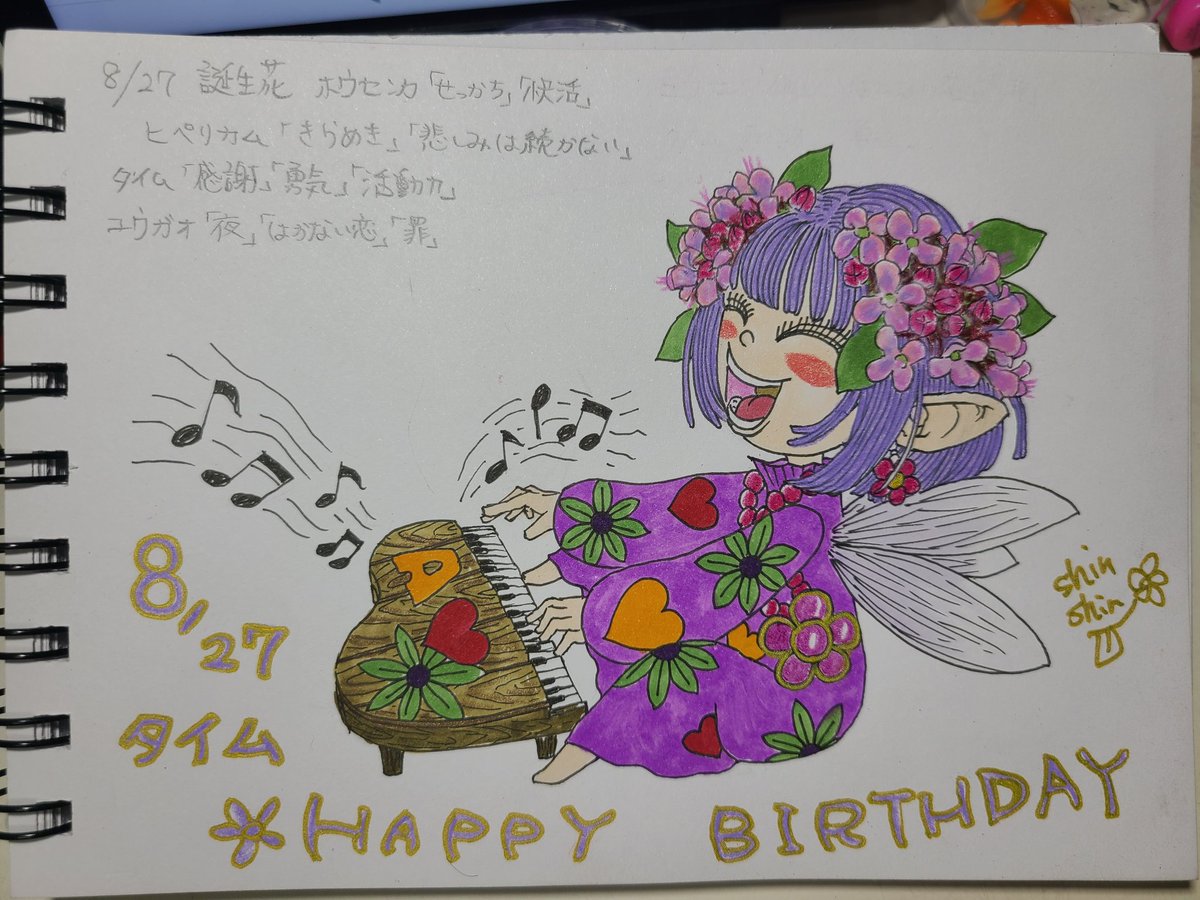 8/27 誕生花 ホウセンカ「せっかち」「快活」
ヒペリカム「きらめき」「悲しみは続かない」
タイム「感謝」「勇気」「活動力」
ユウガオ「夜」「はかない恋」「罪」
A
8/27
タイム
HAPPY BIRTHDAY
shin
shin